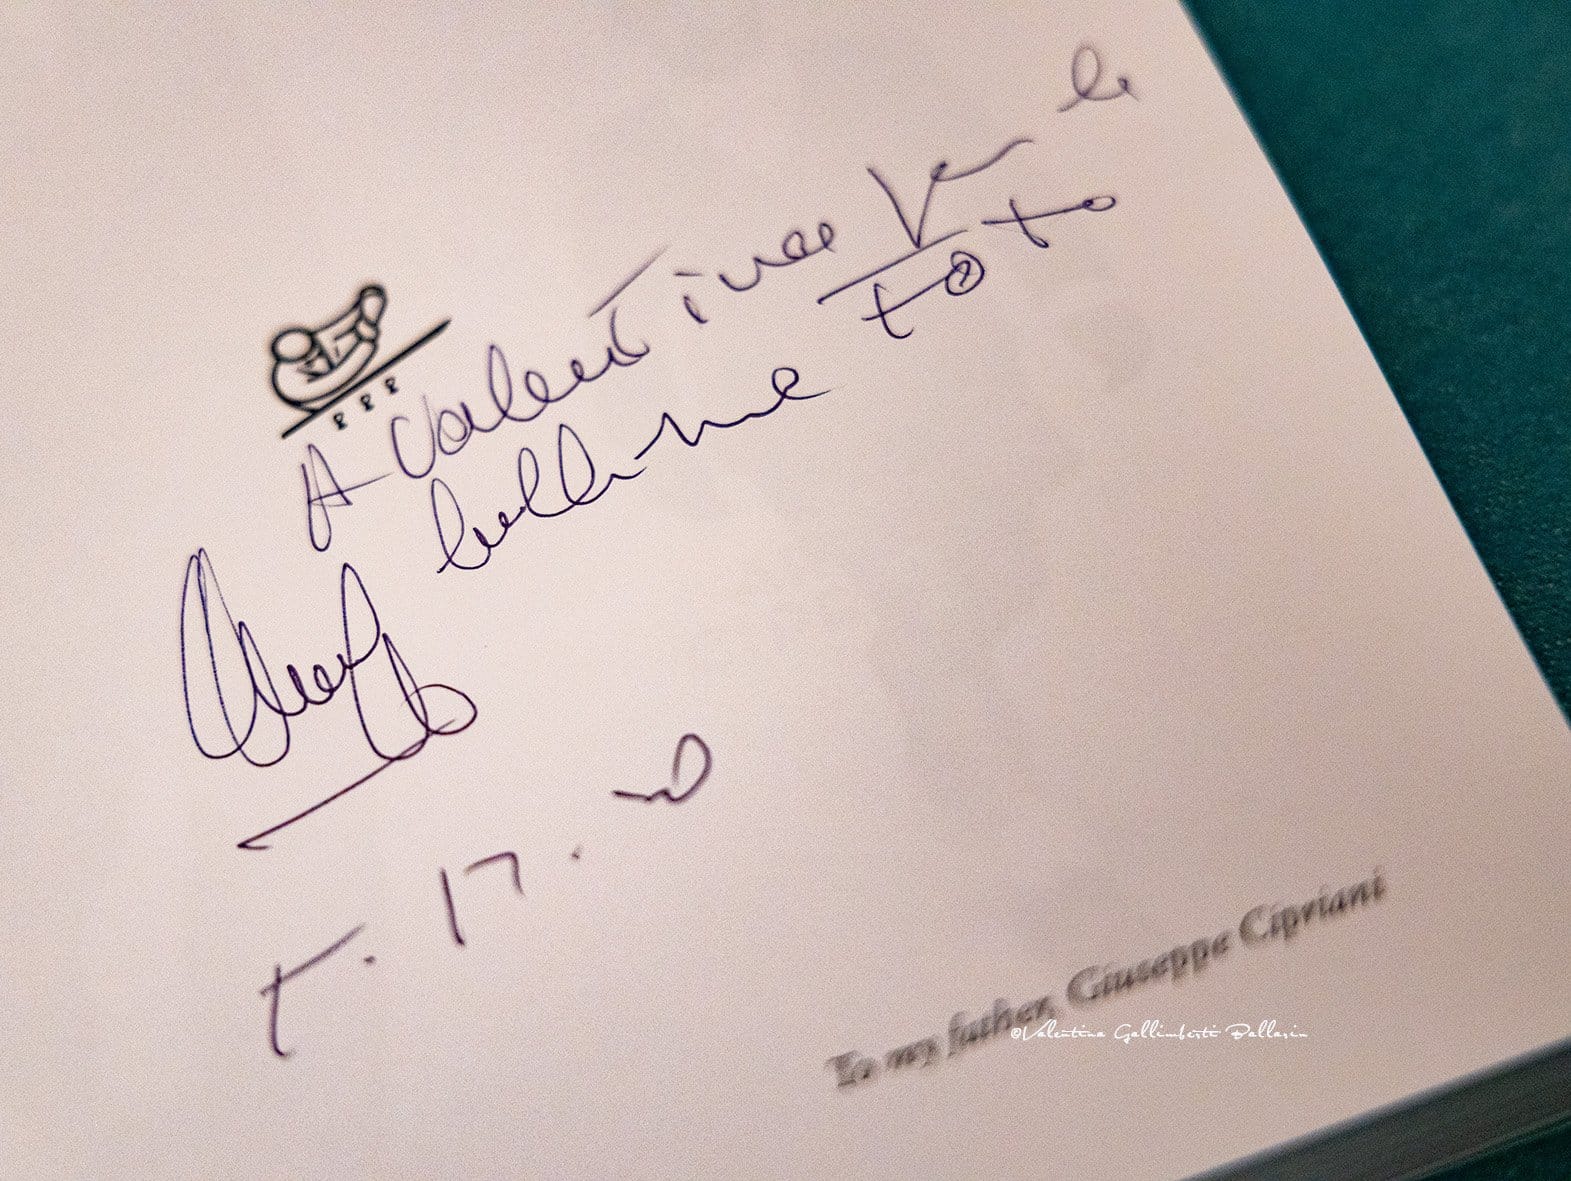 A Valentina Per le
bellissime foto
To my father, Giuseppe Cipriani
©Valentina Gallimberti Ballarin